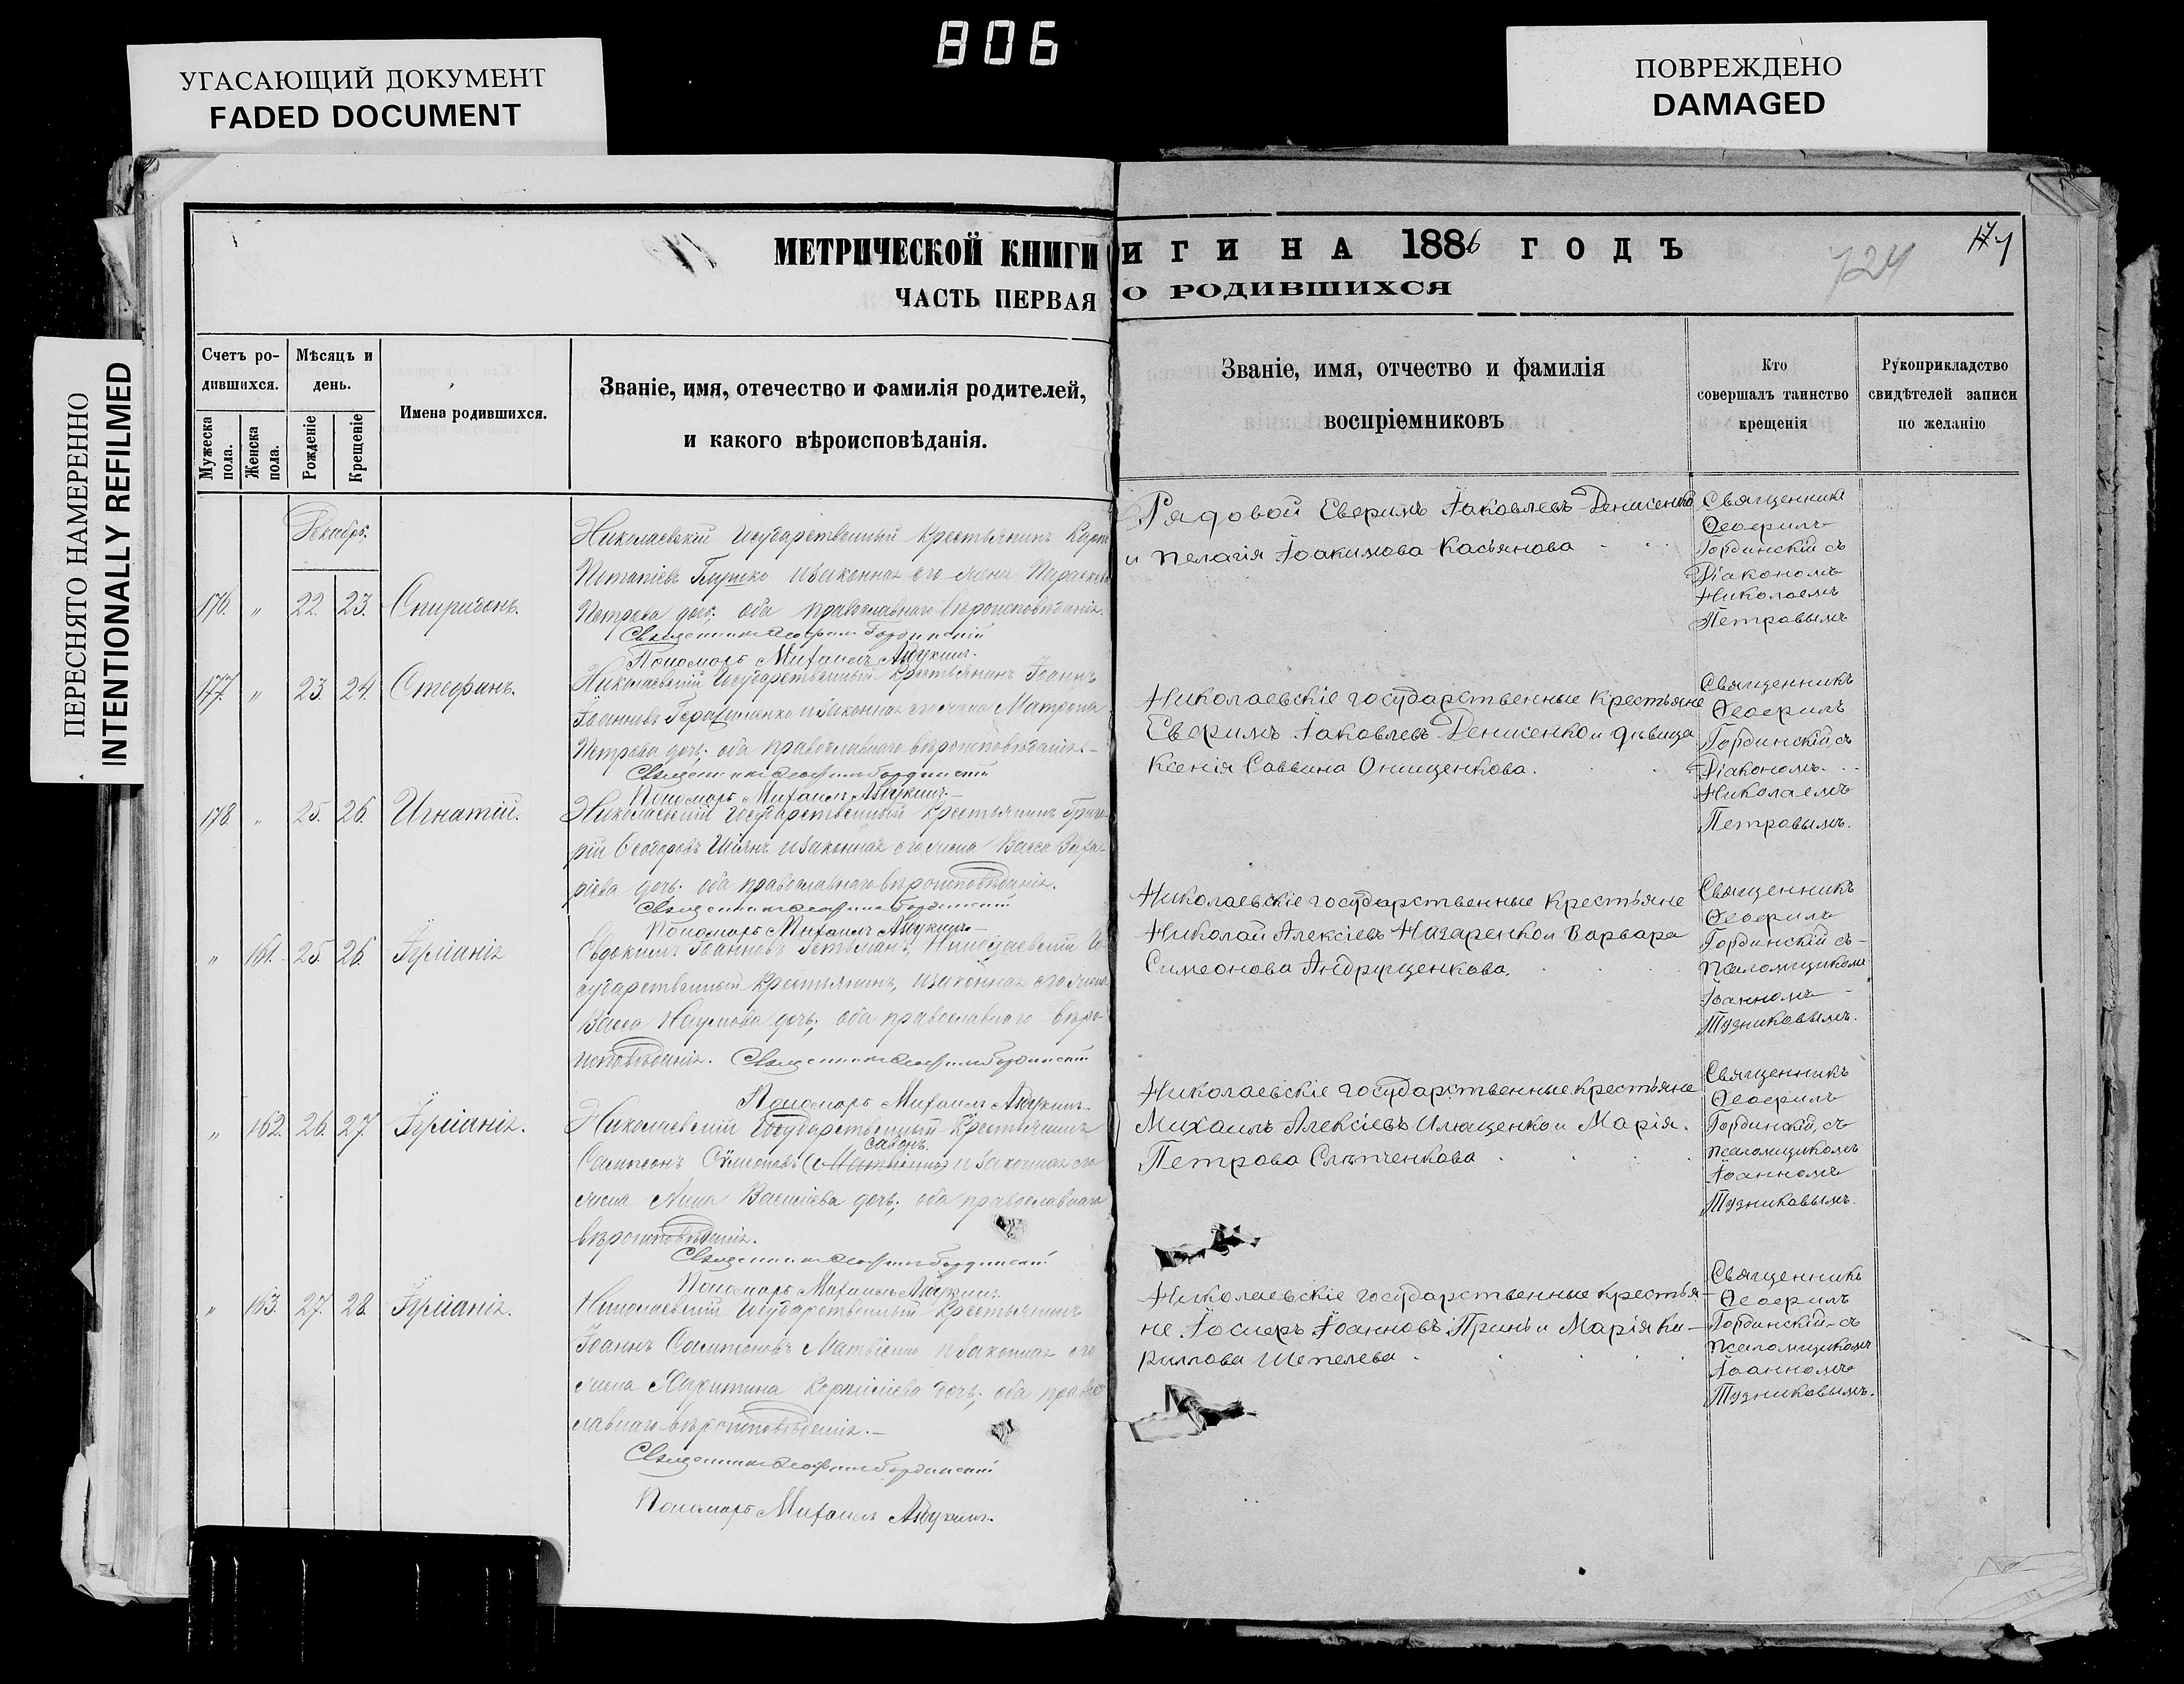 806
УГАСАЮЩИЙ ДОКУМЕНТ
FADED DOCUMENT
ПОВРЕЖДЕНО
DAMAGED
ПЕРЕСНЯТО НАМЕРЕННО
INTENTIONALLY REFILMED
МЕТРИЧЕСКОЙ КНИГИ
ЧАСТЬ ПЕРВАЯ
Счетъ ро-
дившихся.
Мѣсяцъ и
день.
Мужеска
пола.
Женска
пола.
Рожденіе
Крещеніе
Имена родившихся.
Званіе, имя, отечество и фамилія родителей,
и какого вѣроисповѣданія.
Декабрь.
176. " 22. 23. Спиридонъ.
Николаевскій Государственный крестьянинъ Карпъ
Потапіевъ и законная его жена Параскева
Петрова дочь; оба православнаго вѣроисповѣданія.
Священникъ Ѳеофилъ Гординскій
Пономарь Михаилъ
177. " 23 24. Стефанъ.
Николаевскій Государственный крестьянинъ Іоаннъ
Іоанновъ Герасименко и законная его жена Матрона
Петрова дочь; оба православнаго вѣроисповѣданія.
Священникъ Ѳеофилъ Гординскій
Пономарь Михаилъ
178. " 25. 26. Игнатій.
Николаевскій Государственный крестьянинъ Григо-
рій Ѳеодоровъ Шіянъ и законная его жена Васса Заха-
ріева дочь; оба православнаго вѣроисповѣданія.
Священникъ Ѳеофилъ Гординскій
Пономарь Михаилъ
" 161. 25. 26. Іуліанія
Евдокимъ Іоанновъ Гетьманъ, Николаевскій Го-
сударственный крестьянинъ, и законная его жена
Васса Наумова дочь; оба православнаго вѣро-
исповѣданія. Священникъ Ѳеофилъ Гординскій
Пономарь Михаилъ
" 162. 26. 27. Іуліанія.
Николаевскій Государственный крестьянинъ
Савонъ.
Сампсонъ Сѵмеоновъ (Матвіенко) и законная его
жена Анна Василіева дочь; оба православнаго
вѣроисповѣданія.
Священникъ Ѳеофилъ Гординскій
Пономарь Михаилъ
" 163. 27. 28. Іуліанія.
Николаевскій Государственный крестьянинъ
Іоаннъ Сампсоновъ Матвіенко и законная его
жена Харитина Корниліева дочь; оба право-
славнаго вѣроисповѣданія.
Священникъ Ѳеофилъ Гординскій
Пономарь Михаилъ
ИГИ НА 1886 ГОДЪ
О РОДИВШИХСЯ
724
Званіе, имя, отчество и фамилія
воспріемниковъ
Кто
совершалъ таинство
крещенія
Рукоприкладство
свидѣтелей записи
по желанію
Рядовой Еѳеримъ Іаковлевъ Денисенко
и Пелагія Іоакимова Касьянова
Священникъ
Ѳеофилъ
Гординскій съ
Діакономъ
Николаемъ
Петровымъ
Николаевскіе государственные крестьяне
Еѳеримъ Іаковлевъ Денисенко и дѣвица
Ксенія Саввина Онищенкова.
Священникъ
Ѳеофилъ
Гординскій, съ
Діакономъ.
Николаемъ
Петровымъ.
Николаевскіе государственные крестьяне
Николай Алексіевъ Назаренко и Варвара
Симеонова Андрущенкова.
Священникъ
Ѳеофилъ
Гординскій съ
псаломщикомъ
Іоанномъ
Тузниковымъ.
Николаевскіе государственные крестьяне
Михаилъ Алексіевъ Илющенко и Марія
Петрова Слѣпченкова
Священникъ
Ѳеофилъ
Гординскій, съ
псаломщикомъ
Іоанномъ
Тузниковымъ.
Николаевскіе государственные крестья-
не Іосифъ Іоанновъ Принь и Марія Ки-
риллова Шепелева
Священникъ
Ѳеофилъ
Гординскій съ
псаломщикомъ
Іоанномъ
Тузниковымъ.